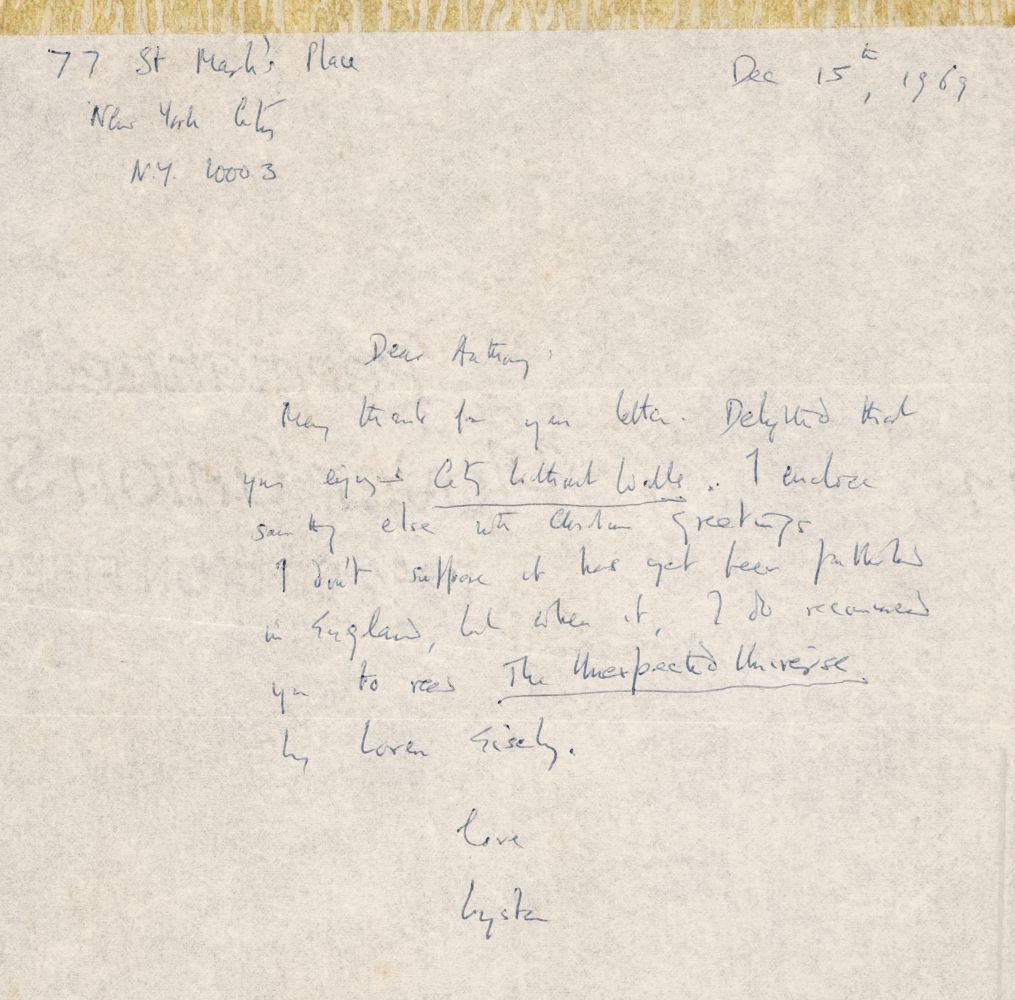 77 St Mark's Place
Dec 15th, 1969
New York City
N.Y. 10003
Dear Anthony,
Many thanks for your letter. Delighted that
you enjoyed City Without Walls. I enclose
something else with Christmas greetings
I don't suppose it has yet been published
in England, but when it, I do recommend
you to read The Unexpected Universe
by Loren Eisely.
love
Wystan